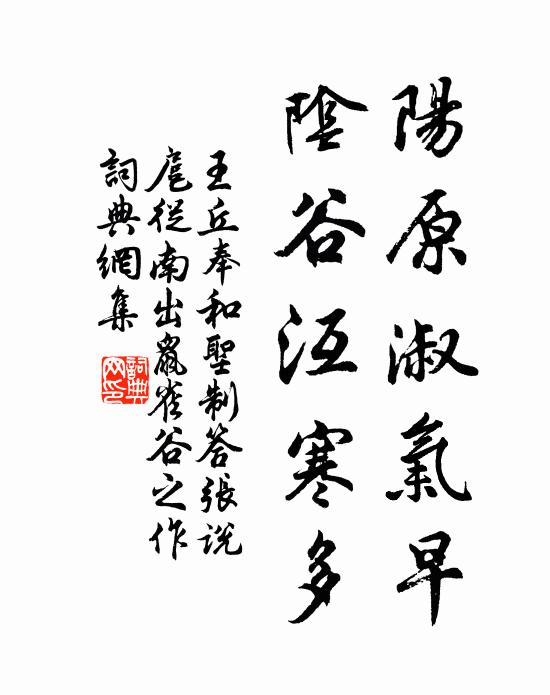 陽原淑氣早
陰谷沍寒多
王丘奉和聖制答張說
扈從南出鼠雀谷之作
詞典網集
詞典
网印